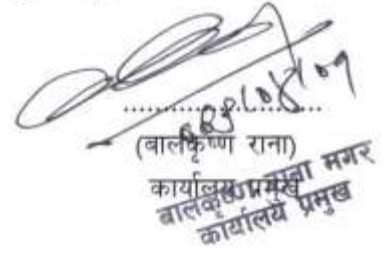 (बालकृष्ण राना)
कार्यालय प्रमुख
बालकृष्ण राना मगर
कार्यालय प्रमुख